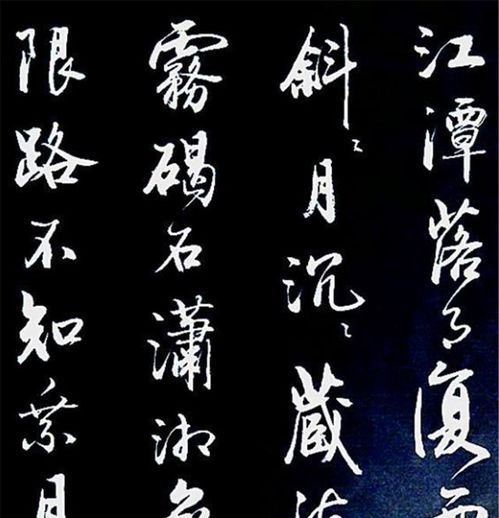 江潭落月復西
斜〻月沉〻藏海
霧碣石瀟湘無
限路不知乘月